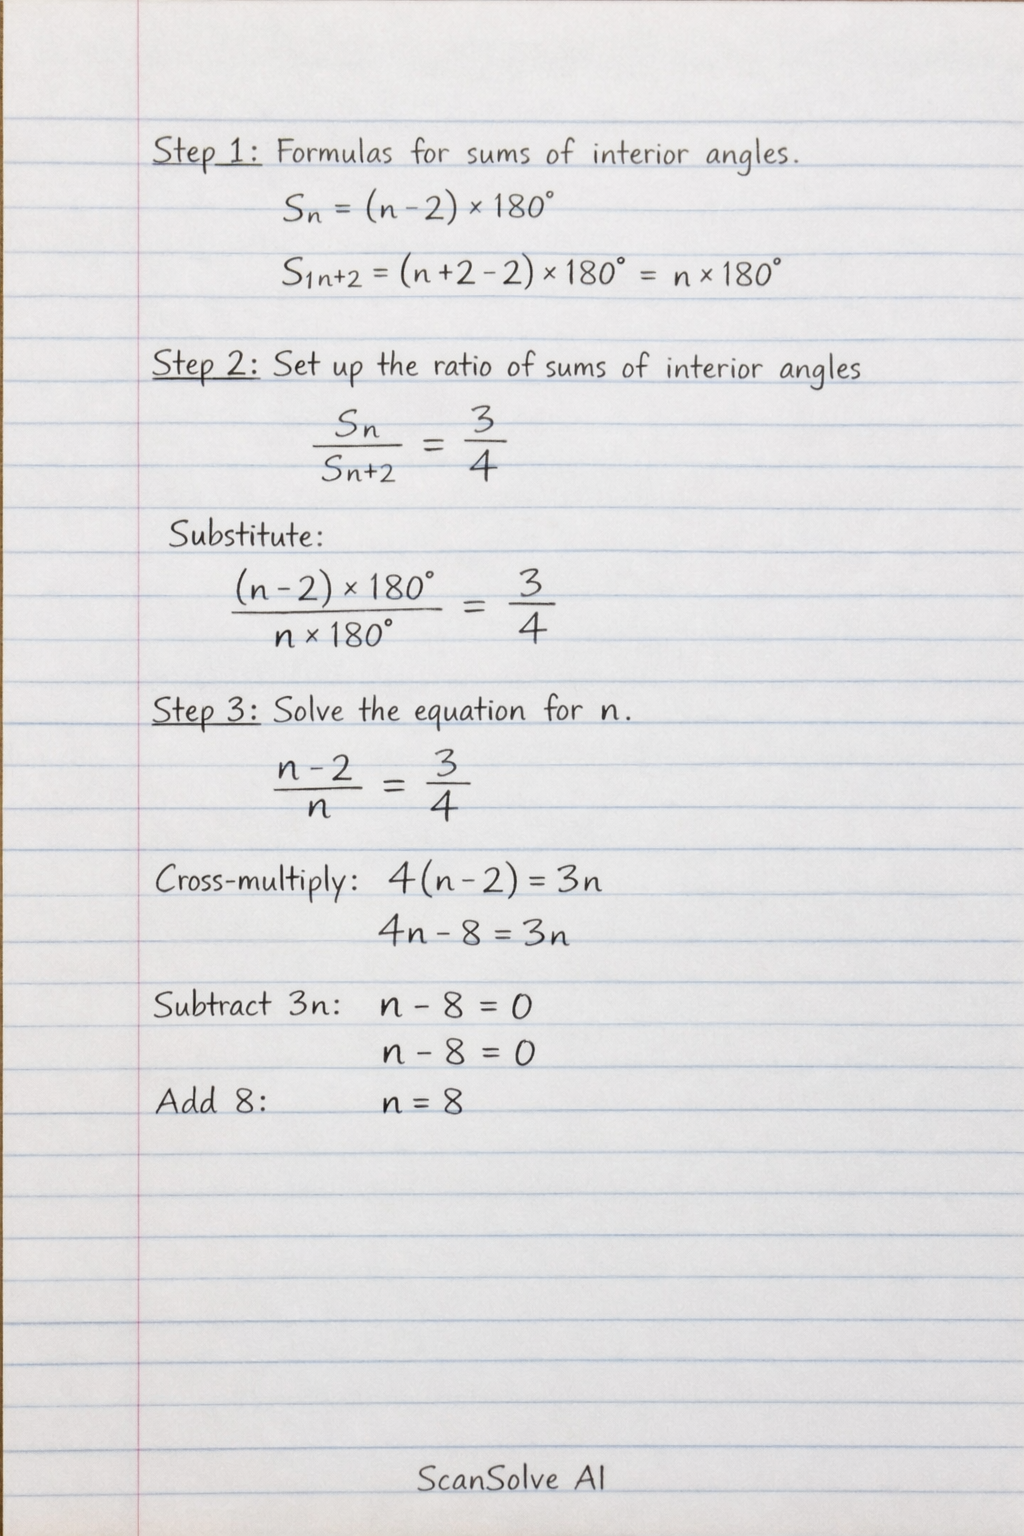 Step 1: Formulas for sums of interior angles.
Sn = (n-2) × 180°
S1n+2 = (n+2-2) × 180° = n × 180°
Step 2: Set up the ratio of sums of interior angles
Sn / Sn+2 = 3 / 4
Substitute:
(n-2) × 180° / n × 180° = 3 / 4
Step 3: Solve the equation for n.
n-2 / n = 3 / 4
Cross-multiply: 4(n-2) = 3n
4n - 8 = 3n
Subtract 3n: n - 8 = 0
n - 8 = 0
Add 8: n = 8
ScanSolve AI